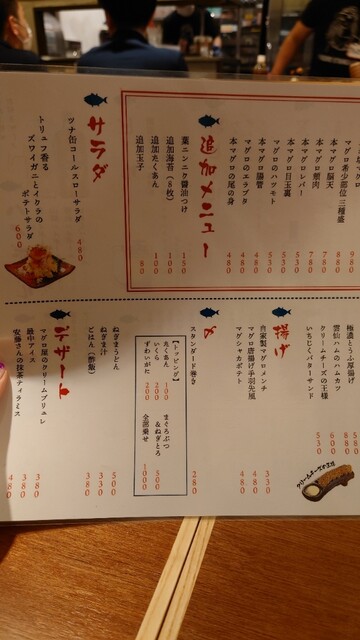 マグロ希少部位三種盛
980
本マグロ脳天
780
本マグロ頬肉
780
本マグロレバー
530
本マグロ目玉裏
530
マグロのハツモト
530
本マグロ腸管
480
マグロのエラブタ
480
本マグロの尾の身
480
追加メニュー
葉ニンニク醤油つけ
150
追加海苔(8枚)
100
追加たくあん
100
追加玉子
80
サラダ
ツナ缶コールスローサラダ
480
トリュフ香る
ズワイガニとイクラの
ポテトサラダ
600
揚げ
極濃とうふ厚揚げ
580
雲仙ハムのハムカツ
880
クリームチーズの王様
600
いちじくバターサンド
530
自家製マグロメンチ
330
マグロ唐揚げ手羽先風
480
マグシャカポテト
480
〆
スタンダード巻き
280
【トッピング】
たくあん 100
いくら 200
ずわいがに 200
まぐろぶつ
&ねぎとろ 500
全部乗せ 1000
ねぎまうどん
500
ねぎま汁
380
ごはん(酢飯)
380
デザート
マグロ屋のクリームブリュレ
380
最中アイス
380
安藤さんの抹茶ティラミス
480